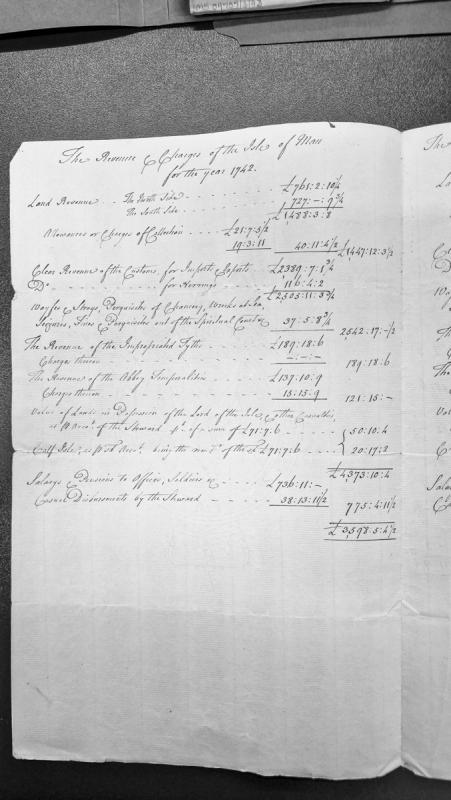 The Revenue & Charges of the Isle of Man
for the year 1742.
Land Revenue - - The North Side - - - - - - £761:2:10¼
The South Side - - - - - - 727:-:9¾
£1488:3:8
Allowances or Charges of Collection - - - - £21:7:5½
19:3:11 40:11:4½ £1447:12:3½
Clear Revenue of the Customs, for Imports & Exports - - £2389:7:1¾
Do - - - - - - - - - for Herrings - - - - 116:4:2
£2505:11:3¾
Wayfs & Strays, Perquisites of Chancery, Wrecks at Sea,
Seizures, Fines & Perquisites out of the Spiritual Courts 37:5:8¾ 2542:17:-½
The Revenue of the Impropriated Tyths - - - - £189:18:6
Charge thereon - - - - - - - -:-:- 189:18:6
The Revenue of the Abby Temporalities - - - - £137:10:9
Charges thereon - - - - - - - 15:15:9 121:15:-
Value of Lands in Possession of the Lord of the Isle & other
as Acct. of the Steward of a sum of £71:7:6 - - - - 50:10:4
Calf Isle, as Acct. being the of the sd. £71:7:6 - - - - 20:17:2
£4373:10:4
Salarys & Pensions to Officers, Soldiers &c - - £736:11:-
Casual Disbursements by the Steward - - - - 38:13:11½ 775:4:11½
£3598:5:4½
The
La